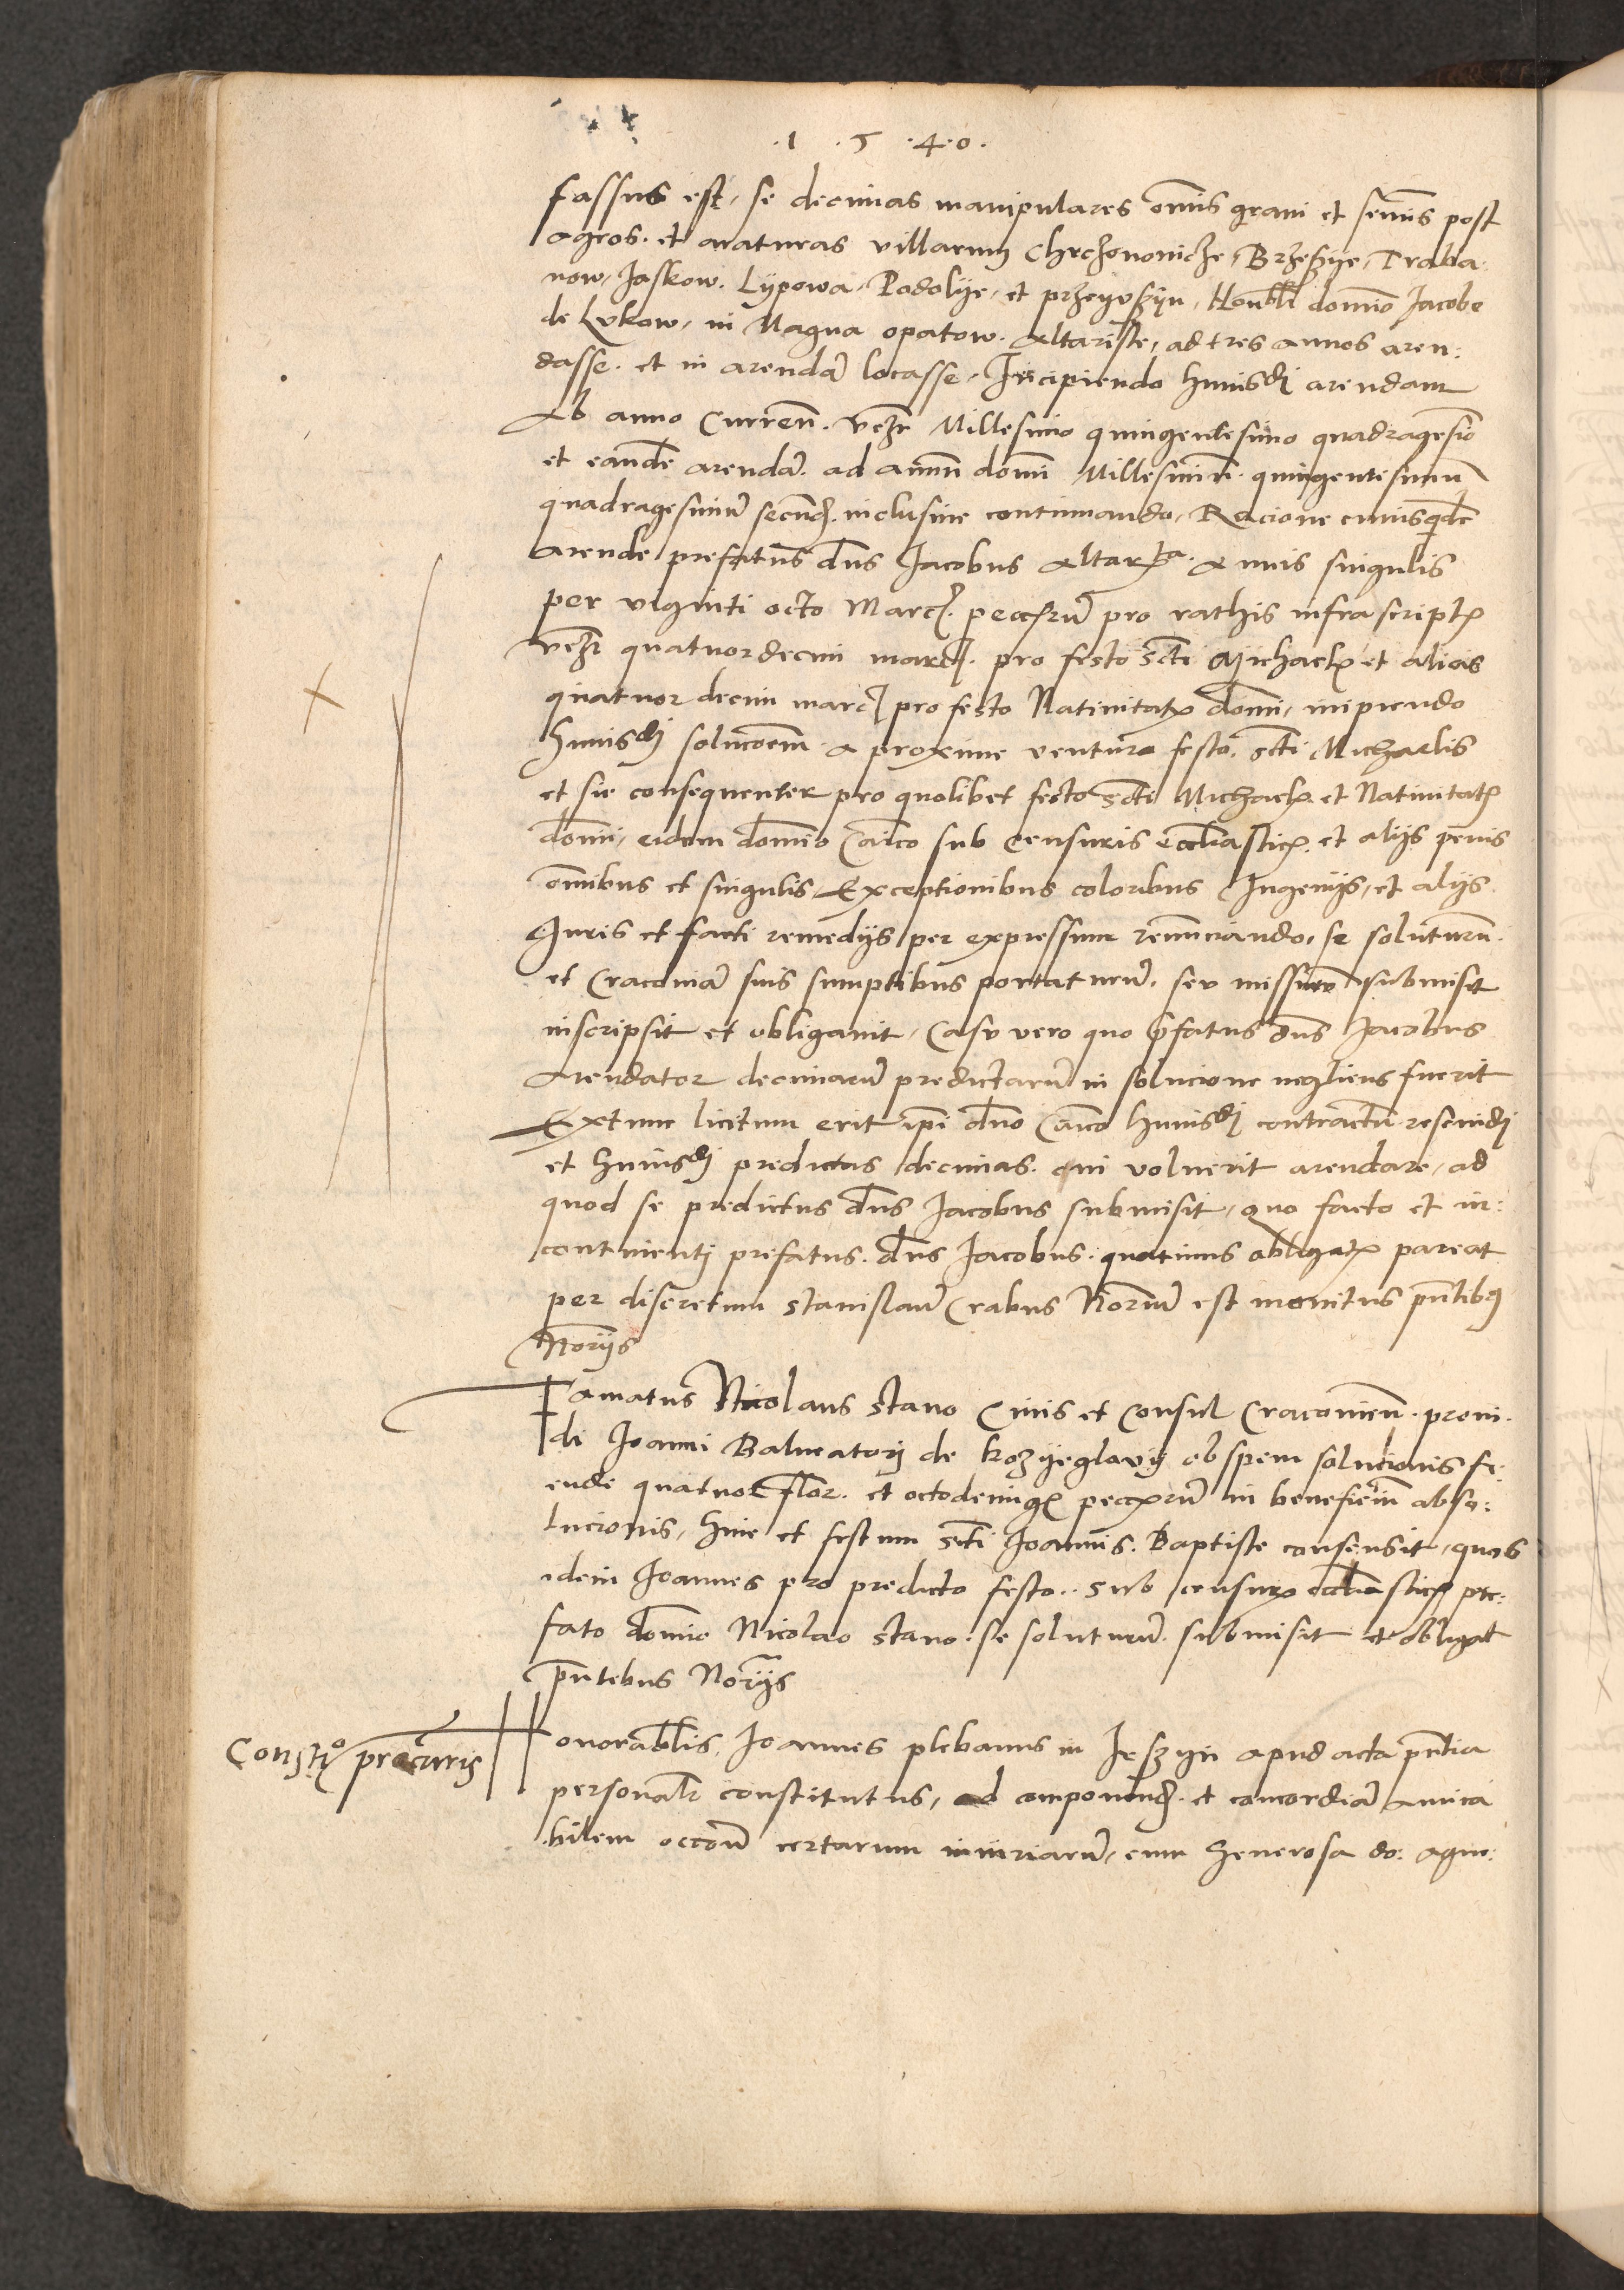 .1 .5 .4.0.
fassus est, se decimas manipulares omnis grani et seminis post
agros et araturas villarum Chrczonowicze, Brzeszye, Traba
now, Jaskow. Lypowa, Podolye, et przeyvszyn, Honorabli domino Jacobo
de Lukow, in Magna opatow. Altariste, ad tres annos aren:
dasse. et in arendam locasse, Incipiendo huiusmodi arendam
Ab anno Curren. videlicet Millesimo quingentesimo quadragesimo
et eandem arendam. ad annum domini Millesimum quingentesimum
quadragesimum secundum. inclusive continuando, Racione cuiusquidem
Arende prefatus dns Jacobus Altarista Annis singulis
per viginti octo Marcas. peccuniarum pro rathis infrascriptis
videlicet quatuordecim marcas. pro festo sancti Michaelis et alias
quatuor decim marcas pro festo Nativitatis domini, incipiendo
huiusmodi solucionem a proxime venturo festo sancti Michaelis
et sic consequenter pro quolibet festo sancti Michaelis et Nativitatis
domini, eidem domino Canonico sub Censuris ecclesiasticis et alijs penis
omnibus et singulis, Exceptionibus coloribus Ingenijs, et alijs
Juris et facti remedijs per expressum renunciando, se soluturum
et Cracoviam suis sumptibus portaturum. seu missurum submisit
inscripsit et obligavit, Casu vero quo prefatus dns Jacobus
Arendator decimarum predictarum in solucione negligens fuerit
Extunc licitum erit ipsi dno Canonico huiusmodi contractum rescindi
et huiusmodi predictas decimas. cui voluerit arendare, ad
quod se predictus dns Jacobus submisit, quo facto et in:
continenti prefatus. dns Jacobus quatinus obligatis pareat
per discretum Stanislaum Crabus Notarium est monitus presentibus
Notarijs
Famatus Nicolaus stano Civis et Consul Cracovien. provi
di Joanni Balneatori de kozyeglovy ob spem solucionis fi:
ende quatuor flor. et octodecim grossis peccuniarum in beneficium abso:
lucionis, hinc et festum sancti Joannis Baptiste consensit, quos
idem Joannes pro predicto festo. sub censuris ecclesiasticis pre:
fato domino Nicolao stano. se soluturum submisit et obligat
presentibus Notarijs
Constitucio procuratoris
Honorabilis Joannes plebanus in Jeszyn apud acta presentia
personaliter constitutus, ad componendum et concordiam amica
bilem occasione certarum iniuriarum, cum Generosa do: Agne: